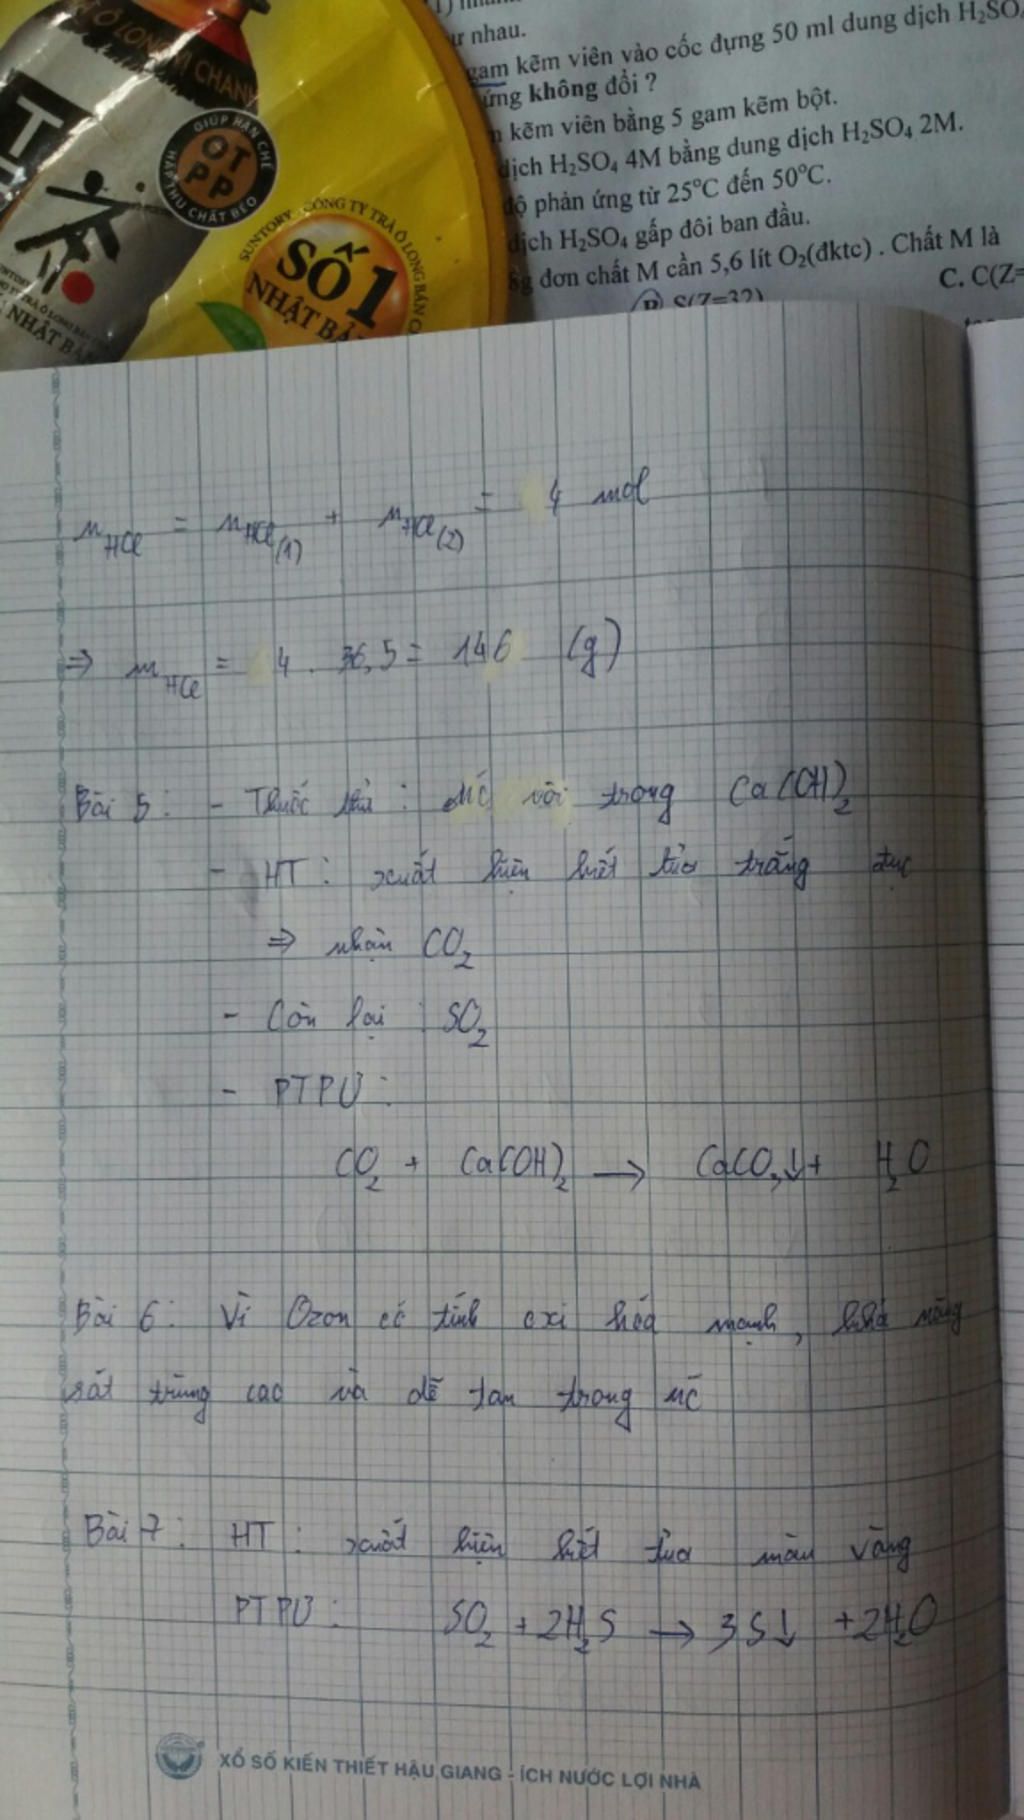 Ô LONG
CHANH
GIÚP HẠN CHẾ
OT
PP
HẤP THU CHẤT BÉO
SUNTORY
CÔNG TY TRÀ Ô LONG BÁN C
SỐ 1
NHẬT BẢ
NHẬT BẢ
ư nhau.
gam kẽm viên vào cốc đựng 50 ml dung dịch H₂SO₄
ứng không đổi ?
kẽm viên bằng 5 gam kẽm bột.
dịch H₂SO₄ 4M bằng dung dịch H₂SO₄ 2M.
độ phản ứng từ 25°C đến 50°C.
dịch H₂SO₄ gấp đôi ban đầu.
8g đơn chất M cần 5,6 lít O₂(đktc) . Chất M là
B S(Z=32)
C. C(Z=
n HCl = n HCl (1) + n HCl (2) = 4 mol
⇒ m HCl = 4 . 36,5 = 146 (g)
Bài 5 : - Thuốc thử : nc vôi trong Ca(OH)₂
- HT : xuất hiện kết tủa trắng đục
⇒ nhận CO₂
- Còn lại : SO₂
- PTPƯ :
CO₂ + Ca(OH)₂ → CaCO₃↓ + H₂O
Bài 6 : Vì Ozon có tính oxi hóa mạnh, khả năng
sát trùng cao và dễ tan trong nc
Bài 7 : HT : xuất hiện kết tủa màu vàng
PTPƯ : SO₂ + 2H₂S → 3S↓ + 2H₂O
XỔ SỐ KIẾN THIẾT HẬU GIANG - ÍCH NƯỚC LỢI NHÀ